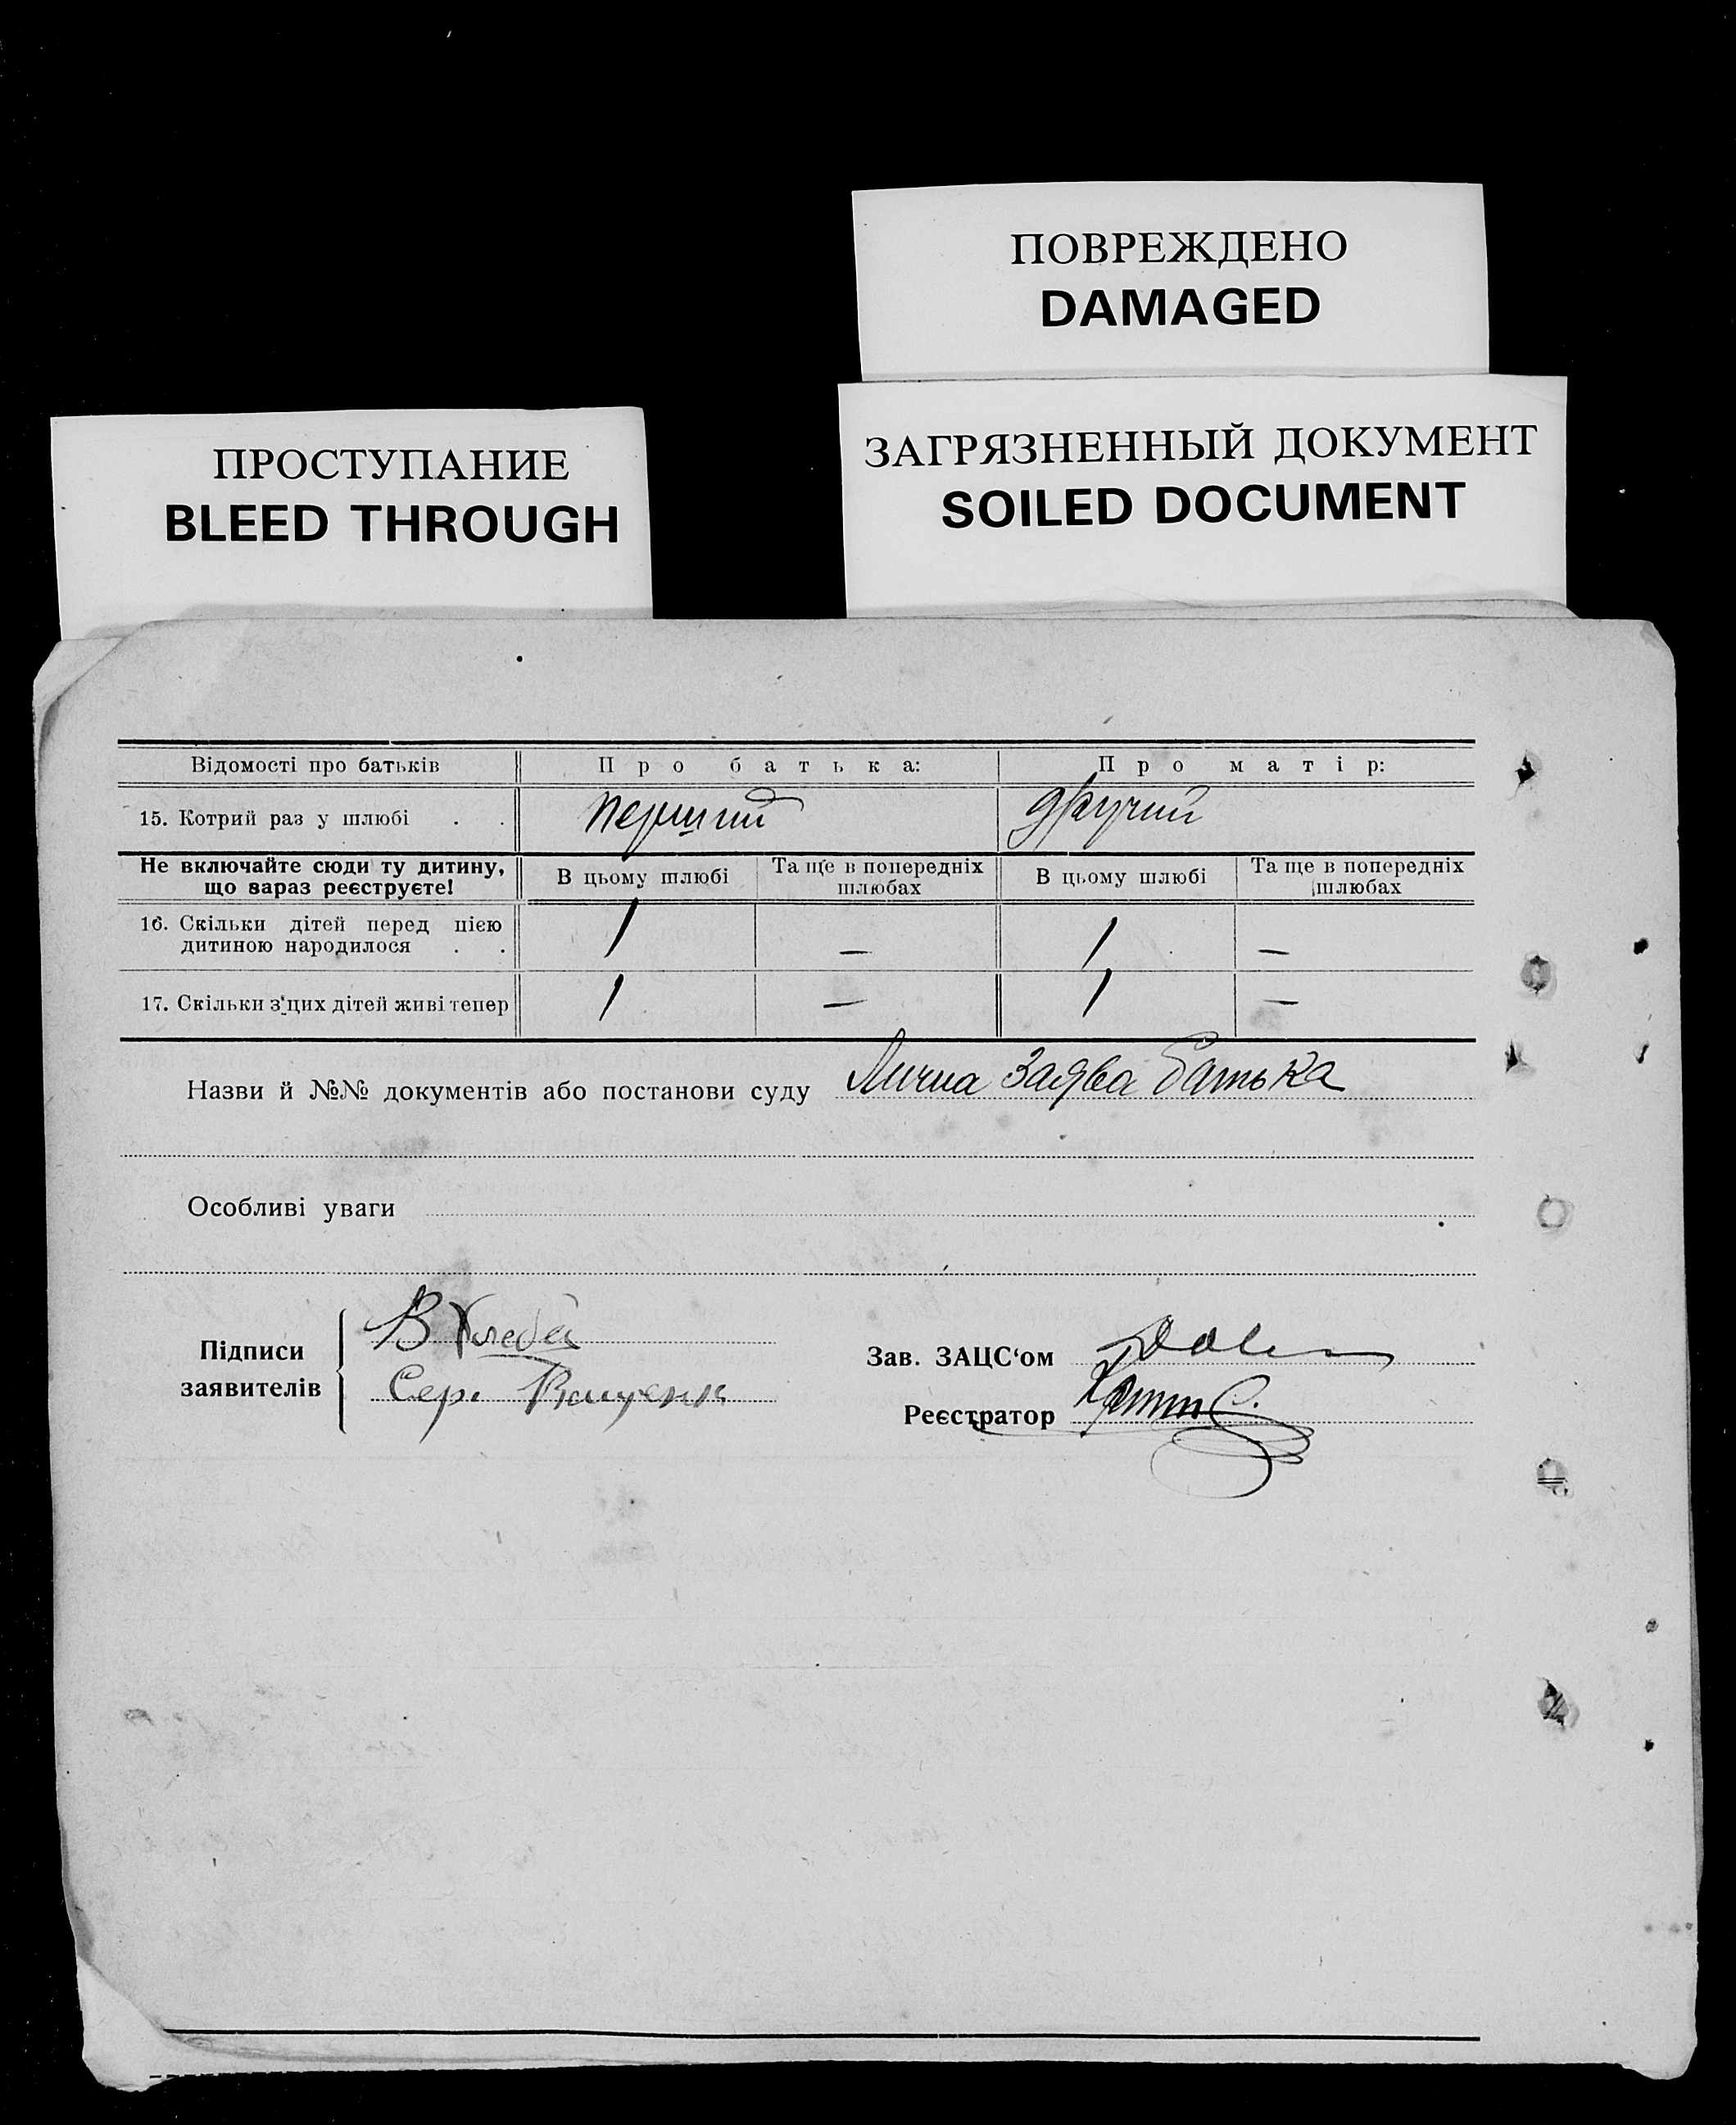 ПОВРЕЖДЕНО
DAMAGED
ПРОСТУПАНИЕ
BLEED THROUGH
ЗАГРЯЗНЕННЫЙ ДОКУМЕНТ
SOILED DOCUMENT
Відомості про батьків Про батька: Про матір:
15. Котрий раз у шлюбі . . перший другий
Не включайте сюди ту дитину, що зараз реєструєте! В цьому шлюбі Та ще в попередніх шлюбах В цьому шлюбі Та ще в попередніх шлюбах
16. Скільки дітей перед цією
дитиною народилося . . 1 — 1 —
17. Скільки з цих дітей живі тепер 1 — 1 —
Назви й №№ документів або постанови суду Лична заява батька
Особливі уваги
Підписи
заявителів
В
Сер.
Зав. ЗАЦС'ом
Реєстратор